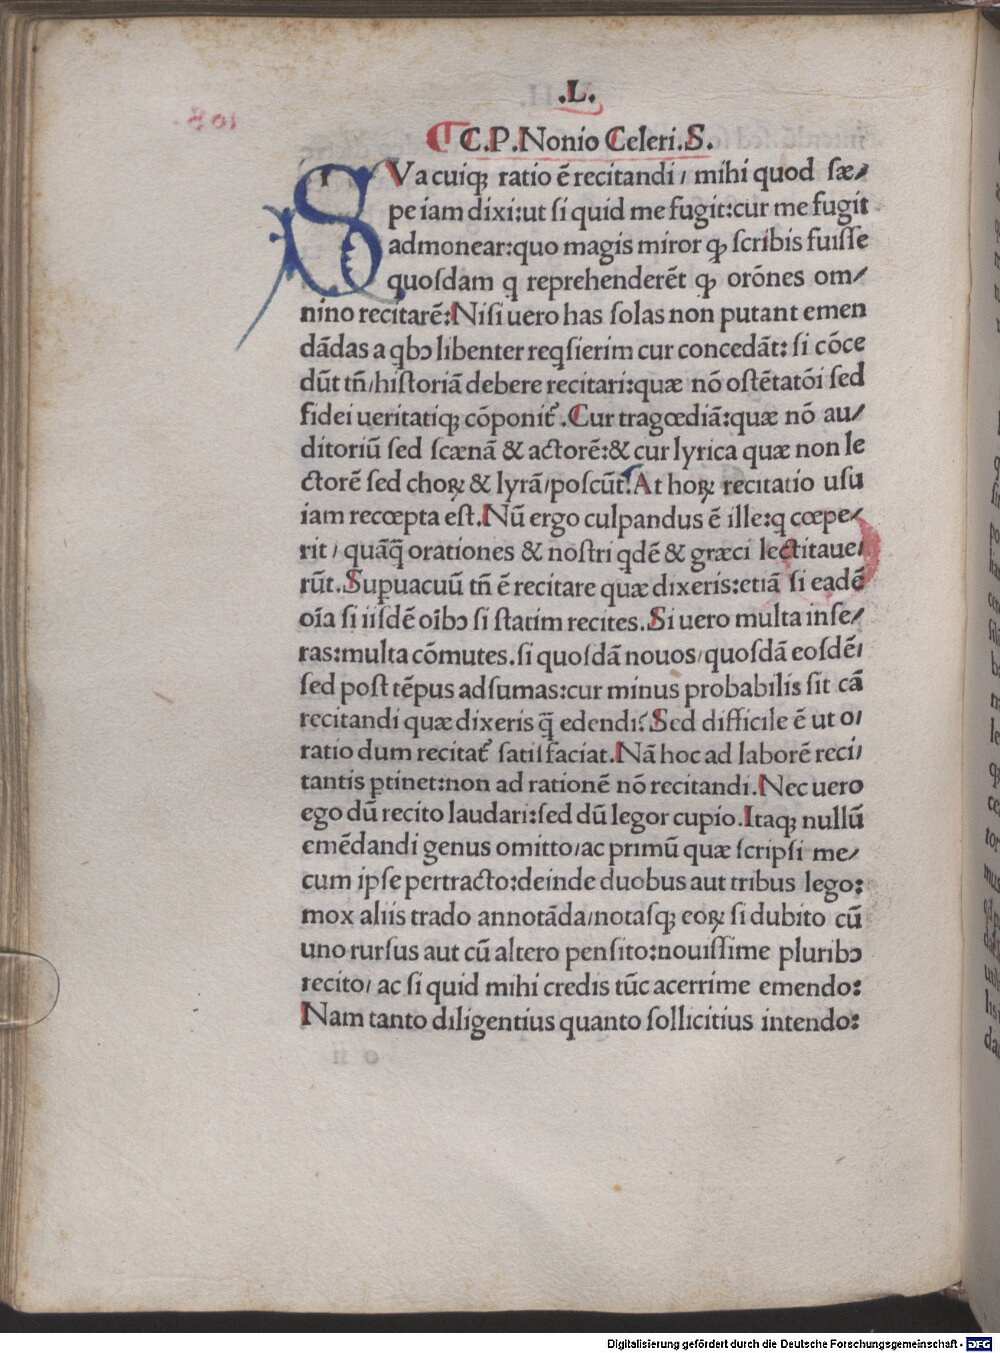 .L.
C.P.Nonio Celeri.S.
SVa cuiqȝ ratio ē recitandi / mihi quod sæ/
pe iam dixi:ut si quid me fugit:cur me fugit
admonear:quo magis miror ꝙ scribis fuisse
quosdam q reprehenderēt ꝙ orōnes om/
nino recitarē:Nisi uero has solas non putant emen
dādas a qbꝯ libenter reqsierim cur concedāt: si cōce
dūt tñ/historiā debere recitari:quæ nō ostētatōi sed
fidei ueritatiqȝ cōponit᷑.Cur tragœdiā:quæ nō au/
ditoriū sed scænā & actorē:& cur lyrica quæ non le
ctorē sed choꝝ & lyrā/poscūt.At hoꝝ recitatio usu
iam recœpta est.Nū ergo culpandus ē ille:q cœpe/
rit / quāq̄ orationes & nostri qdē & græci lectitaue/
rūt.Supuacuū tñ ē recitare quæ dixeris:etiā si eadē
oīa si iisdē oībꝯ si statim recites.Si uero multa inse/
ras:multa cōmutes.si quosdā nouos/quosdā eosdē/
sed post tēpus adsumas:cur minus probabilis sit cā
recitandi quæ dixeris q̄ edendi?Sed difficile ē ut o/
ratio dum recitat᷑ satisfaciat.Nā hoc ad laborē reci/
tantis ptinet:non ad rationē nō recitandi.Nec uero
ego dū recito laudari:sed dū legor cupio.Itaqȝ nullū
emēdandi genus omitto/ac primū quæ scripsi me/
cum ipse pertracto:deinde duobus aut tribus lego:
mox aliis trado annotāda/notasqȝ eoꝝ si dubito cū
uno rursus aut cū altero pensito:nouissime pluribꝯ
recito/ ac si quid mihi credis tūc acerrime emendo:
Nam tanto diligentius quanto sollicitius intendo:
Digitalisierung gefördert durch die Deutsche Forschungsgemeinschaft - DFG